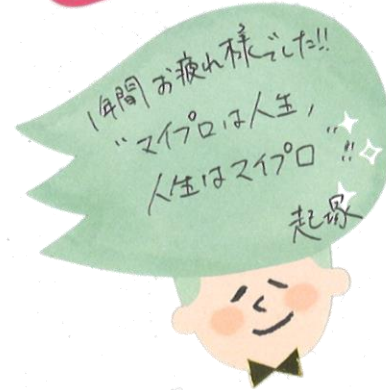 1年間お疲れ様でした!!
"マイプロは人生,
人生はマイプロ"!!
起塚